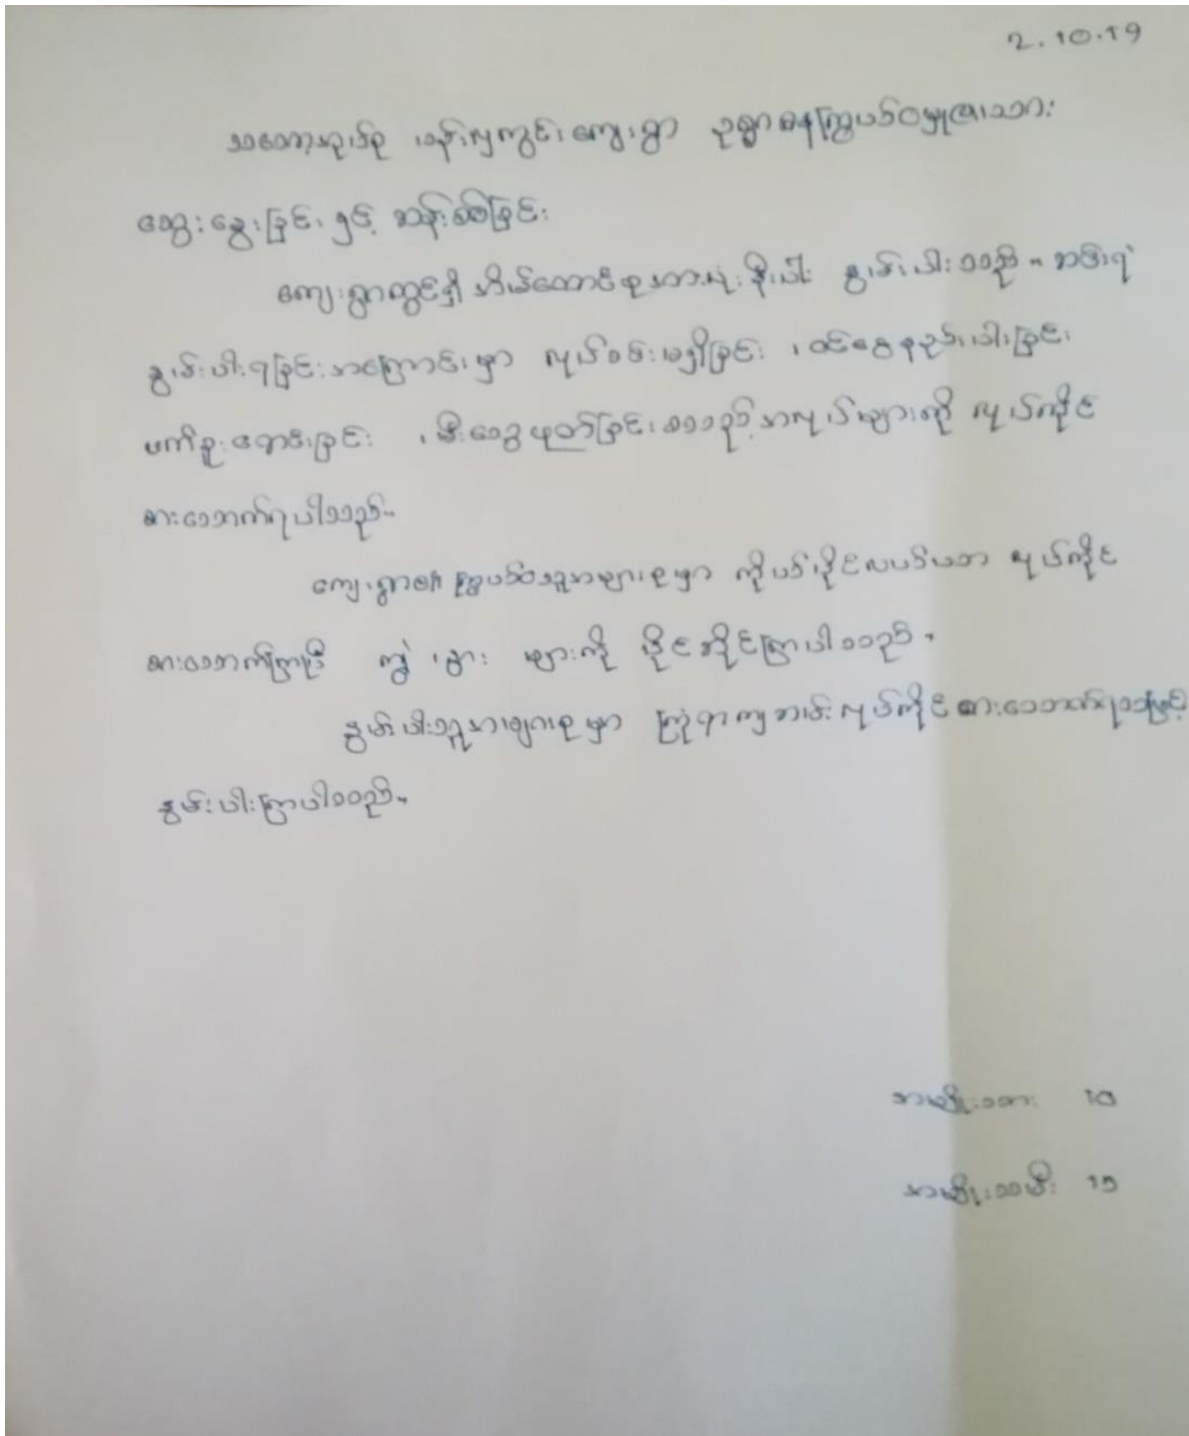 ၂.၁၀.၁၉
သဘော့သုပ်စု၊ ခန်းလှကွင်းကျေးရွာ ဥစ္စာဓနကြွယ်ဝမှုအား
ဆွေးနွေးခြင်း၊ နှင့် ဆန်းစစ်ခြင်း
ကျေးရွာတွင်ရှိ အိမ်ထောင်စုအားလုံးနီးပါး နွမ်းပါးသည်။ အဓိက
နွမ်းပါးရခြင်းအကြောင်းမှာ လုပ်ငန်းမရှိခြင်း၊ ဝင်ငွေနည်းပါးခြင်း၊
ဖက်ခူးရောင်းခြင်း၊ မီးသွေးဖုတ်ခြင်း၊ စသည့်အလုပ်များကို လုပ်ကိုင်
စားသောက်ရပါသည်။
ကျေးရွာ၏ ကြွယ်ဝသူအများစုမှာ ကိုယ်ပိုင်လယ်ယာ လုပ်ကိုင်
စားသောက်ကြပြီး ကျွဲ၊ နွား များကို ပိုင်ဆိုင်ကြပါသည်။
နွမ်းပါးသူအများစုမှာ ကြုံရာကျဘမ်းလုပ်ကိုင်စားသောက်ရသဖြင့်
နွမ်းပါးကြပါသည်။
အမျိုးသား ၁၀
အမျိုးသမီး ၁၅